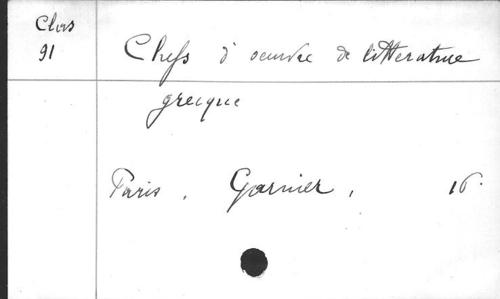 Clas
91
Chefs d'oeuvre de litterature
grecque
Paris, Garnier, 16.